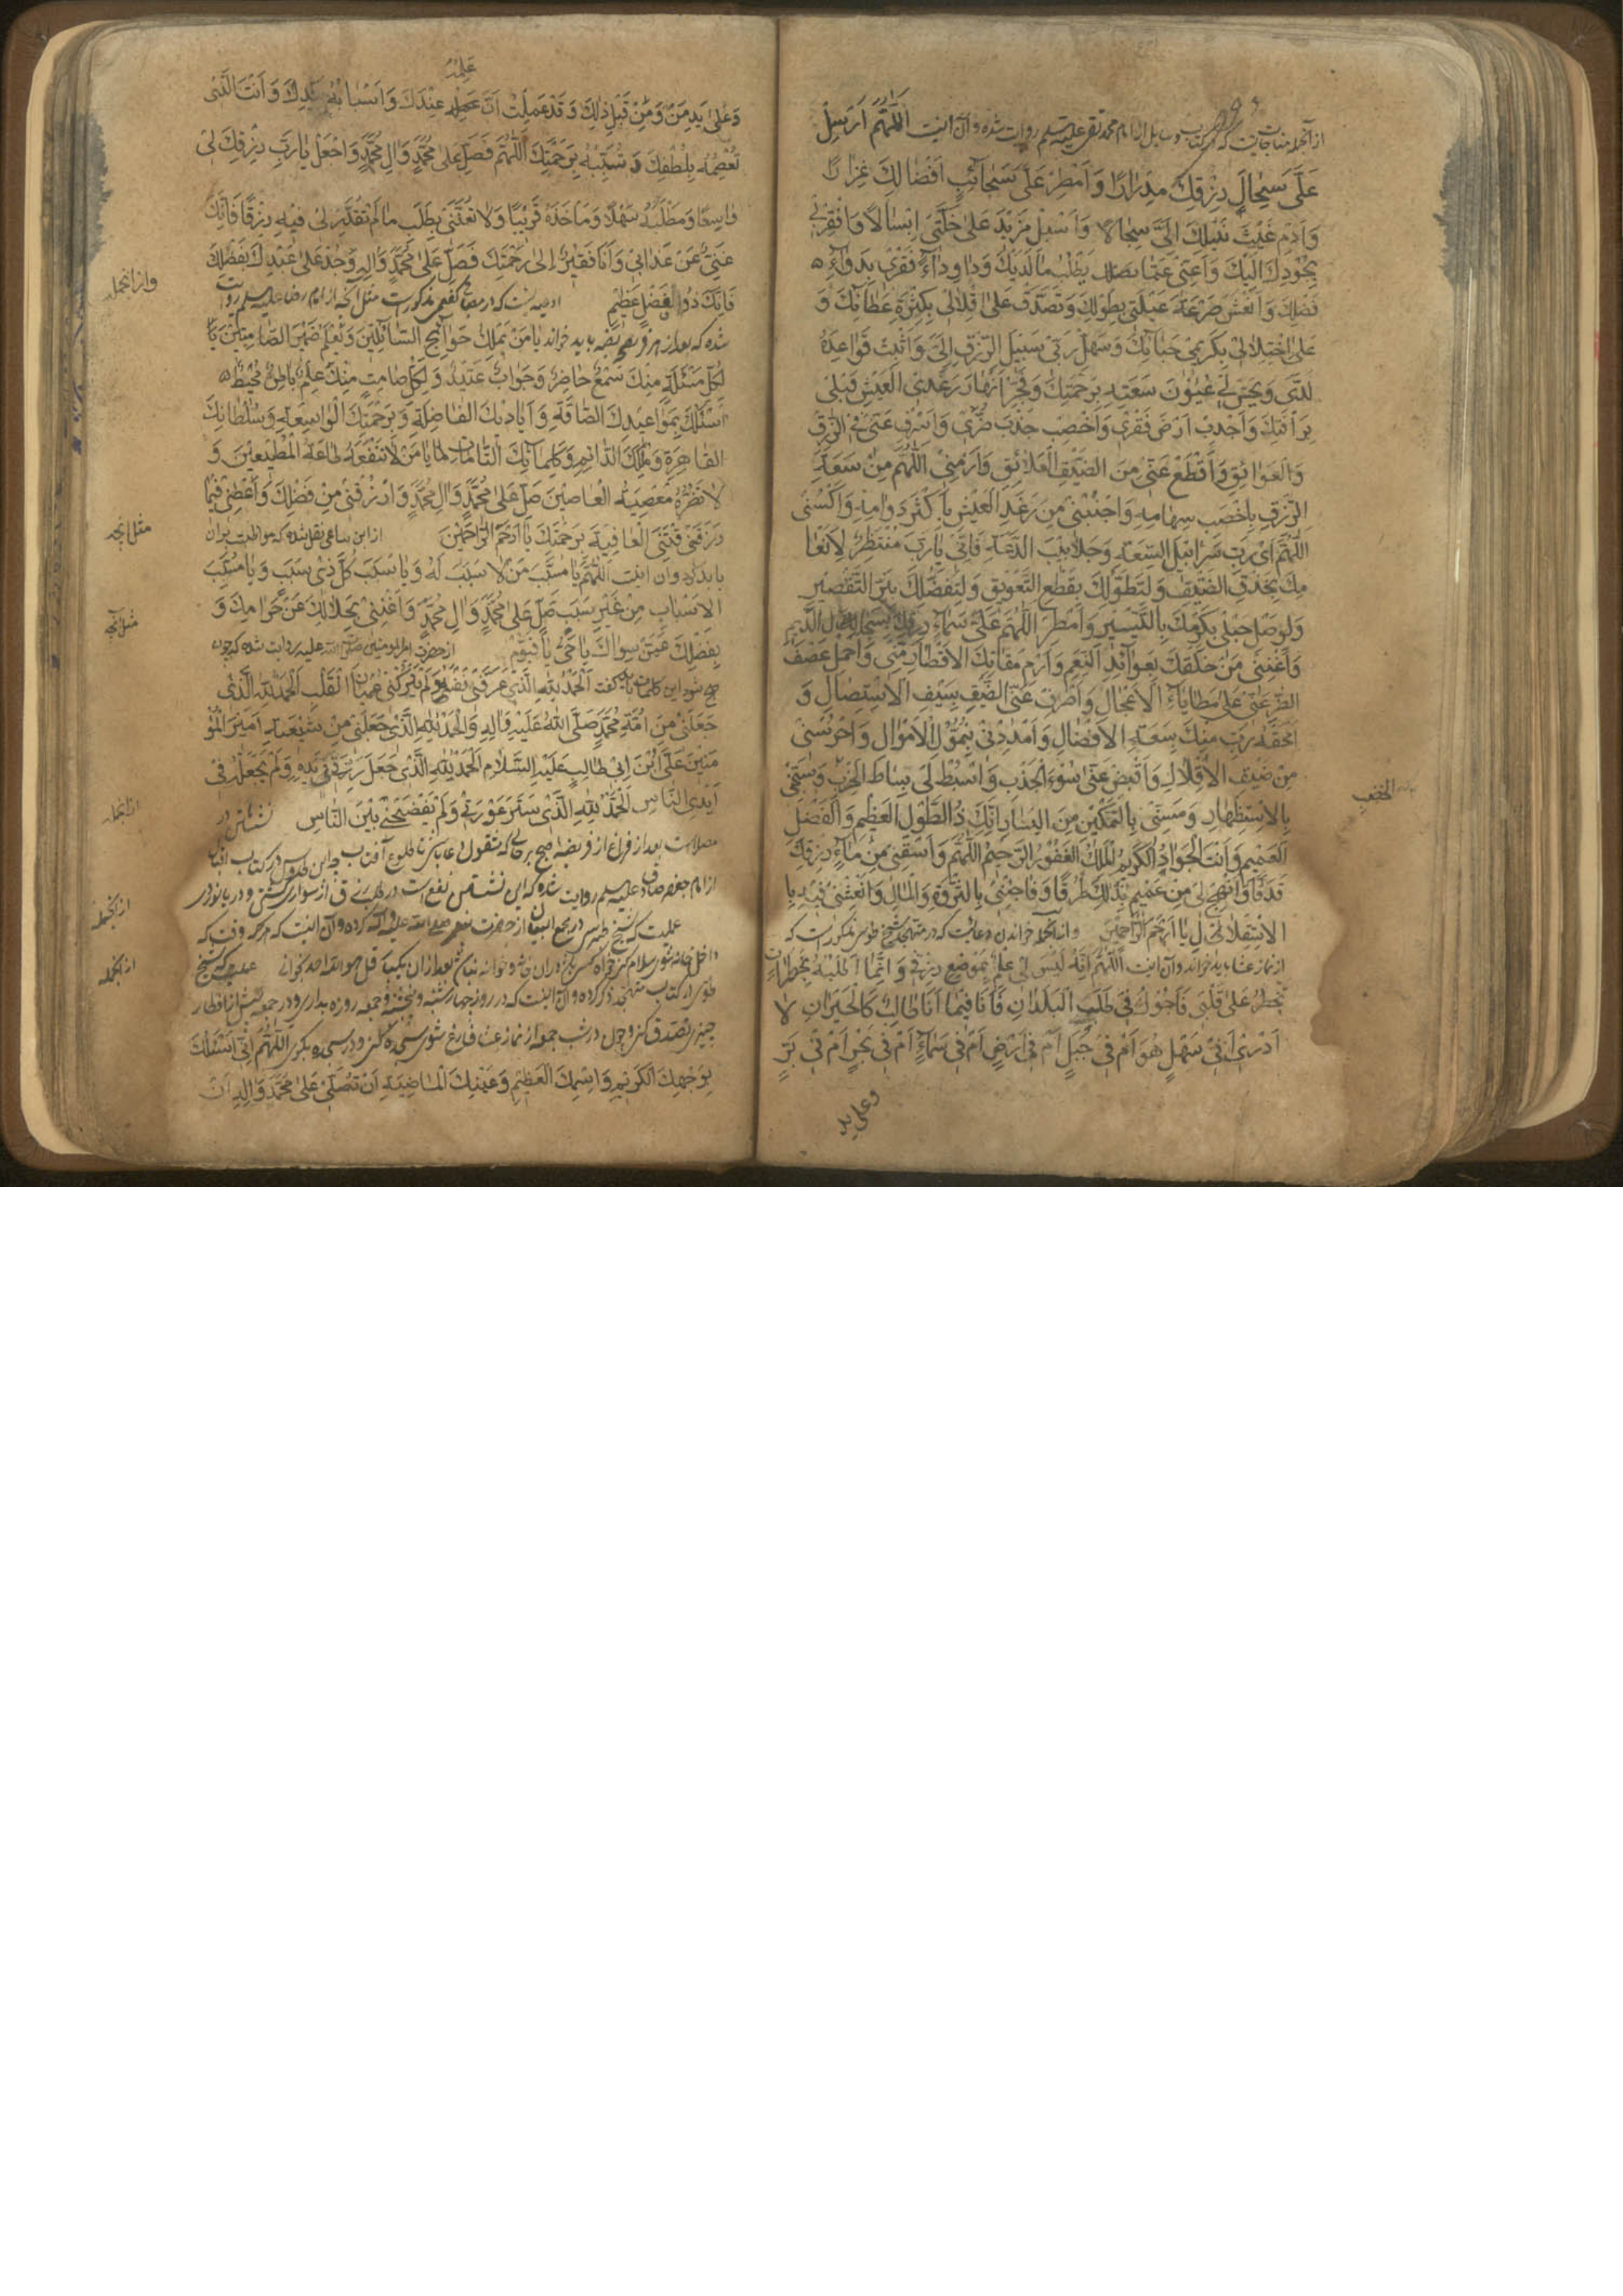 از آنجمله مناجاتیست که در کتب بسیار از امام محمد تقی علیه السلم روایت شده و آن اینست اَللّٰهُمَّ اَرْسِلْ
عَلَیَّ سِجَالَ رِزْقِكَ مِدْرَارًا وَ اَمْطِرْ عَلَیَّ سَحَائِبَ اَفْضَالِكَ غِزَارًا
وَ اَدِمْ غَیْثَ نَیْلِكَ اِلَیَّ سِجَالًا وَ اَسْبِلْ مَزِیْدَ عَلٰی خَلَّتِی اِسْبَالًا وَ افْقِرْنِی
بِجُوْدِكَ اِلَیْكَ وَ اَغْنِنِی عَمَّا یَطْلُبُ مَا لَدَیْكَ وَ دَاوِ دَاءَ فَقْرِی بِدَوَاءِ
فَضْلِكَ وَ انْعَشْ صَرْعَةَ عَیْلَتِی بِطَوْلِكَ وَ تَصَدَّقْ عَلٰی اِقْلَالِی بِكَثْرَةِ عَطَائِكَ وَ
عَلَی اخْتِلَالِی بِكَرِیْمِ حَبَائِكَ وَ سَهِّلْ رَبِّ سَبِیْلَ الرِّزْقِ اِلَیَّ وَ اَثْبِتْ قَوَاعِدَهُ
لَدَیَّ وَ بَجِّسْ لِی عُیُوْنَ سَعَتِهِ بِرَحْمَتِكَ وَ فَجِّرْ اَنْهَارَ رَغَدِ الْعَیْشِ قِبَلِی
بِرَاْفَتِكَ وَ اَجْدِبْ اَرْضَ فَقْرِی وَ اَخْصِبْ جَدْبَ ضُرِّی وَ اصْرِفْ عَنِّی فِی الرِّزْقِ
وَ الْعَوَائِقَ وَ اقْطَعْ عَنِّی مِنَ الضِّیْقِ الْعَلَائِقَ وَ ارْمِنِی اللّٰهُمَّ مِنْ سَعَةِ
الرِّزْقِ بِاَخْصَبِ سِهَامِهِ وَ احْبُنِی مِنْ رَغَدِ الْعَیْشِ بِاَكْثَرِ دَوَامِهِ وَ اكْسُنِی
اللّٰهُمَّ اَیْ رَبِّ سَرَابِیْلَ السَّعَةِ وَ جَلَابِیْبَ الدَّعَةِ فَاِنِّی یَا رَبِّ مُنْتَظِرٌ لِاِنْعَا
مِكَ بِحَذْفِ الضِّیْقِ وَ لِتَطَوُّلِكَ بِقَطْعِ التَّعْوِیْقِ وَ لِتَفَضُّلِكَ بِبَتْرِ التَّقْصِیْرِ
وَ لِوَصْلِ حَبْلِی بِكَرَمِكَ بِالتَّیْسِیْرِ وَ اَمْطِرِ اللّٰهُمَّ عَلَیَّ سَمَاءَ رِزْقِكَ بِسِجَالِ الدِّیَمِ
وَ اَغْنِنِی مِنْ خَلْقِكَ بِعَوَائِدِ النِّعَمِ وَ ارْمِ مَقَاتِلَ الْاِقْتَارِ مِنِّی وَ احْمِلْ عَسْفَ
الضُّرِّ عَنِّی عَلٰی مَطَایَاءِ الْاِعْجَالِ وَ اصْرِفْ عَنِّی الضِّیْقَ بِسَیْفِ الْاِسْتِیْصَالِ وَ
اَتْحِفْهُ رَبِّ مِنْكَ بِسَعَةِ الْاِفْضَالِ وَ امْدُدْنِی بِنُمُوِّ الْاَمْوَالِ وَ احْرُسْنِی
مِنْ ضِیْقِ الْاِقْلَالِ وَ اقْبِضْ عَنِّی سُوْءَ الْجَدْبِ وَ ابْسُطْ لِی بِسَاطَ الْخِصْبِ
بِالْاِسْتِظْهَارِ وَ مَسِّنِی بِالتَّمْكِیْنِ مِنَ الْیَسَارِ اِنَّكَ ذُو الطَّوْلِ الْعَظِیْمِ وَ الْفَضْلِ
الْعَمِیْمِ وَ اَنْتَ الْجَوَادُ الْكَرِیْمُ الْمَلِكُ الْغَفُوْرُ الرَّحِیْمُ اللّٰهُمَّ وَ اسْقِنِی مِنْ مَاءِ رِزْقِكَ
غَدَقًا وَ انْهَجْ لِی مِنْ عَمِیْمِ بَذْلِكَ طُرُقًا وَ فَاجِئْنِی بِالثَّرْوَةِ وَ الْمَالِ وَ انْعَشْنِی فِیْهِ بِا
الْاِسْتِقْلَالِ یَا اَرْحَمَ الرَّاحِمِیْنَ و از آنجمله خواندن دعائیست که در متهجد شیخ طوسی مذکور است که
از نماز عشا باید خواند و آن اینست اَللّٰهُمَّ اِنَّهُ لَیْسَ لِی عِلْمٌ بِمَوْضِعِ رِزْقِی وَ اِنَّمَا اَطْلُبُهُ بِخَطَرَاتٍ
تَخْطُرُ عَلٰی قَلْبِی فَاَجُوْلُ فِی طَلَبِهِ الْبُلْدَانَ فَاَنَا فِیْمَا اَنَا طَالِبٌ كَالْحَیْرَانِ لَا
اَدْرِی اَفِی سَهْلٍ هُوَ اَمْ فِی جَبَلٍ اَمْ فِی اَرْضٍ اَمْ فِی سَمَاءٍ اَمْ فِی بَحْرٍ اَمْ فِی بَرٍّ
وعلی ید
الخصب
عِلْمُهُ
وَ عَلٰی یَدِ مَنْ وَ مِنْ قِبَلِ ذٰلِكَ وَ قَدْ عَلِمْتُ اَنَّ عِنْدَكَ وَ اَسْبَابَهُ بِیَدِكَ وَ اَنْتَ الَّذِی
تَقْسِمُهُ بِلُطْفِكَ وَ تُسَبِّبُهُ بِرَحْمَتِكَ اَللّٰهُمَّ فَصَلِّ عَلٰی مُحَمَّدٍ وَ اٰلِ مُحَمَّدٍ وَ اجْعَلْ یَا رَبِّ رِزْقَكَ لِی
وَاسِعًا وَ مَطْلَبَهُ سَهْلًا وَ مَأْخَذَهُ قَرِیْبًا وَ لَا تُعَنِّنِی بِطَلَبِ مَا لَمْ تُقَدِّرْ لِی فِیْهِ رِزْقًا فَاِنَّكَ
غَنِیٌّ عَنْ عَذَابِی وَ اَنَا فَقِیْرٌ اِلٰی رَحْمَتِكَ فَصَلِّ عَلٰی مُحَمَّدٍ وَ اٰلِهِ وَ جُدْ عَلٰی عَبْدِكَ بِفَضْلِكَ
وازانجمله
فَاِنَّكَ ذُو الْفَضْلٍ عَظِیْمٍ ادعیه ایست که در مصباح کفعمی مذکور است مثل آنچه از امام رضا علیه السلم روایت
شده که بعد از هر فریضه باید خواند یَا مَنْ یَمْلِكُ حَوَائِجَ السَّائِلِیْنَ وَ یَعْلَمُ ضَمِیْرَ الصَّامِتِیْنَ یَا
لِكُلِّ مَسْئَلَةٍ مِنْكَ سَمْعٌ حَاضِرٌ وَ جَوَابٌ عَتِیْدٌ وَ لِكُلِّ صَامِتٍ مِنْكَ عِلْمٌ بَاطِنٌ مُحِیْطٌ
اَسْئَلُكَ بِمَوَاعِیْدِكَ الصَّادِقَةِ وَ اَیَادِیْكَ الْفَاضِلَةِ وَ بِرَحْمَتِكَ الْوَاسِعَةِ وَ سُلْطَانِكَ
القَاهِرَةِ وَ مُلْكِكَ الدَّائِمِ وَ كَلِمَاتِكَ التَّامَّاتِ یَا مَنْ لَا تَنْفَعُهُ طَاعَةُ الْمُطِیْعِیْنَ وَ
لَا تَضُرُّهُ مَعْصِیَةُ الْعَاصِیْنَ صَلِّ عَلٰی مُحَمَّدٍ وَ اٰلِ مُحَمَّدٍ وَ ارْزُقْنِی مِنْ فَضْلِكَ وَ اَعْطِنِی فِیْمَا
مثل آنچه
رَزَقْتَنِی الْعَافِیَةَ بِرَحْمَتِكَ یَا اَرْحَمَ الرَّاحِمِیْنَ از ابن ساعی نقل شده که مواظبت بر آن
باید کرد و آن اینست اَللّٰهُمَّ یَا مُسَبِّبَ مَنْ لَا سَبَبَ لَهُ وَ یَا سَبَبَ كُلِّ ذِی سَبَبٍ وَ یَا مُسَبِّبَ
الْاَسْبَابِ مِنْ غَیْرِ سَبَبٍ صَلِّ عَلٰی مُحَمَّدٍ وَ اٰلِ مُحَمَّدٍ وَ اَغْنِنِی بِحَلَالِكَ عَنْ حَرَامِكَ وَ
مثل آنچه
بِفَضْلِكَ عَمَّنْ سِوَاكَ یَا حَیُّ یَا قَیُّوْمُ از حضرت امیرالمومنین صلی الله علیه روایت شده که چون
صبح شود این کلمات باید گفت اَلْحَمْدُ لِلّٰهِ الَّذِی عَرَّفَنِی نَفْسَهُ وَ لَمْ یَتْرُكْنِی عُمْیَانَ الْقَلْبِ اَلْحَمْدُ لِلّٰهِ الَّذِی
جَعَلَنِی مِنْ اُمَّةِ مُحَمَّدٍ صَلَّی اللّٰهُ عَلَیْهِ وَ اٰلِهِ وَ الْحَمْدُ لِلّٰهِ الَّذِی جَعَلَنِی مِنْ شِیْعَةِ اَمِیْرِ الْمُؤْ
مِنِیْنَ عَلِیِّ ابْنِ اَبِی طَالِبٍ عَلَیْهِ السَّلَام اَلْحَمْدُ لِلّٰهِ الَّذِی جَعَلَ رِزْقِی بِیَدِهِ وَ لَمْ یَجْعَلْهُ فِی
ازانجمله
اَیْدِی النَّاسِ اَلْحَمْدُ لِلّٰهِ الَّذِی سَتَرَ عَوْرَتِی وَ لَمْ یَفْضَحْنِی بَیْنَ النَّاسِ نشستن در
مصلاست بعد از فراغ از فریضه صبح بر حالی که مشغول دعا باشی تا طلوع آفتاب چه ابن طاوس در کتاب
از امام جعفر صادق علیه السلم روایت شده که این نشستن نفع است در طلب رزق از سوار گشتن و در دریا نوردی
ازانجمله
عملیست که شیخ طبرسی در مجمع البیان از حضرت پیغمبر صلی الله علیه و آله کرده و آن اینست که هر وقت که
داخل خانه شوی سلام کنی خواه کسی در آن باشد و خواه نباشد بعد از آن یکبار قل هو الله احد بخوانی عملیست که شیخ
ازانجمله
طوسی در کتاب متهجد ذکر کرده و آن اینست که در روز چهارشنبه و پنجشنبه و جمعه روزه بداری و در جمعه پیش از افطار
چیزی تصدق کنی و چون در شب جمعه از نماز عشا فارغ شوی سجده کنی و در سجده بگوی اَللّٰهُمَّ اِنِّی اَسْئَلُكَ
بِوَجْهِكَ الْكَرِیْمِ وَ اسْمِكَ الْعَظِیْمِ وَ عَیْنِكَ الْمَاضِیَةِ اَنْ تُصَلِّیَ عَلٰی مُحَمَّدٍ وَ اٰلِهِ اَنْ